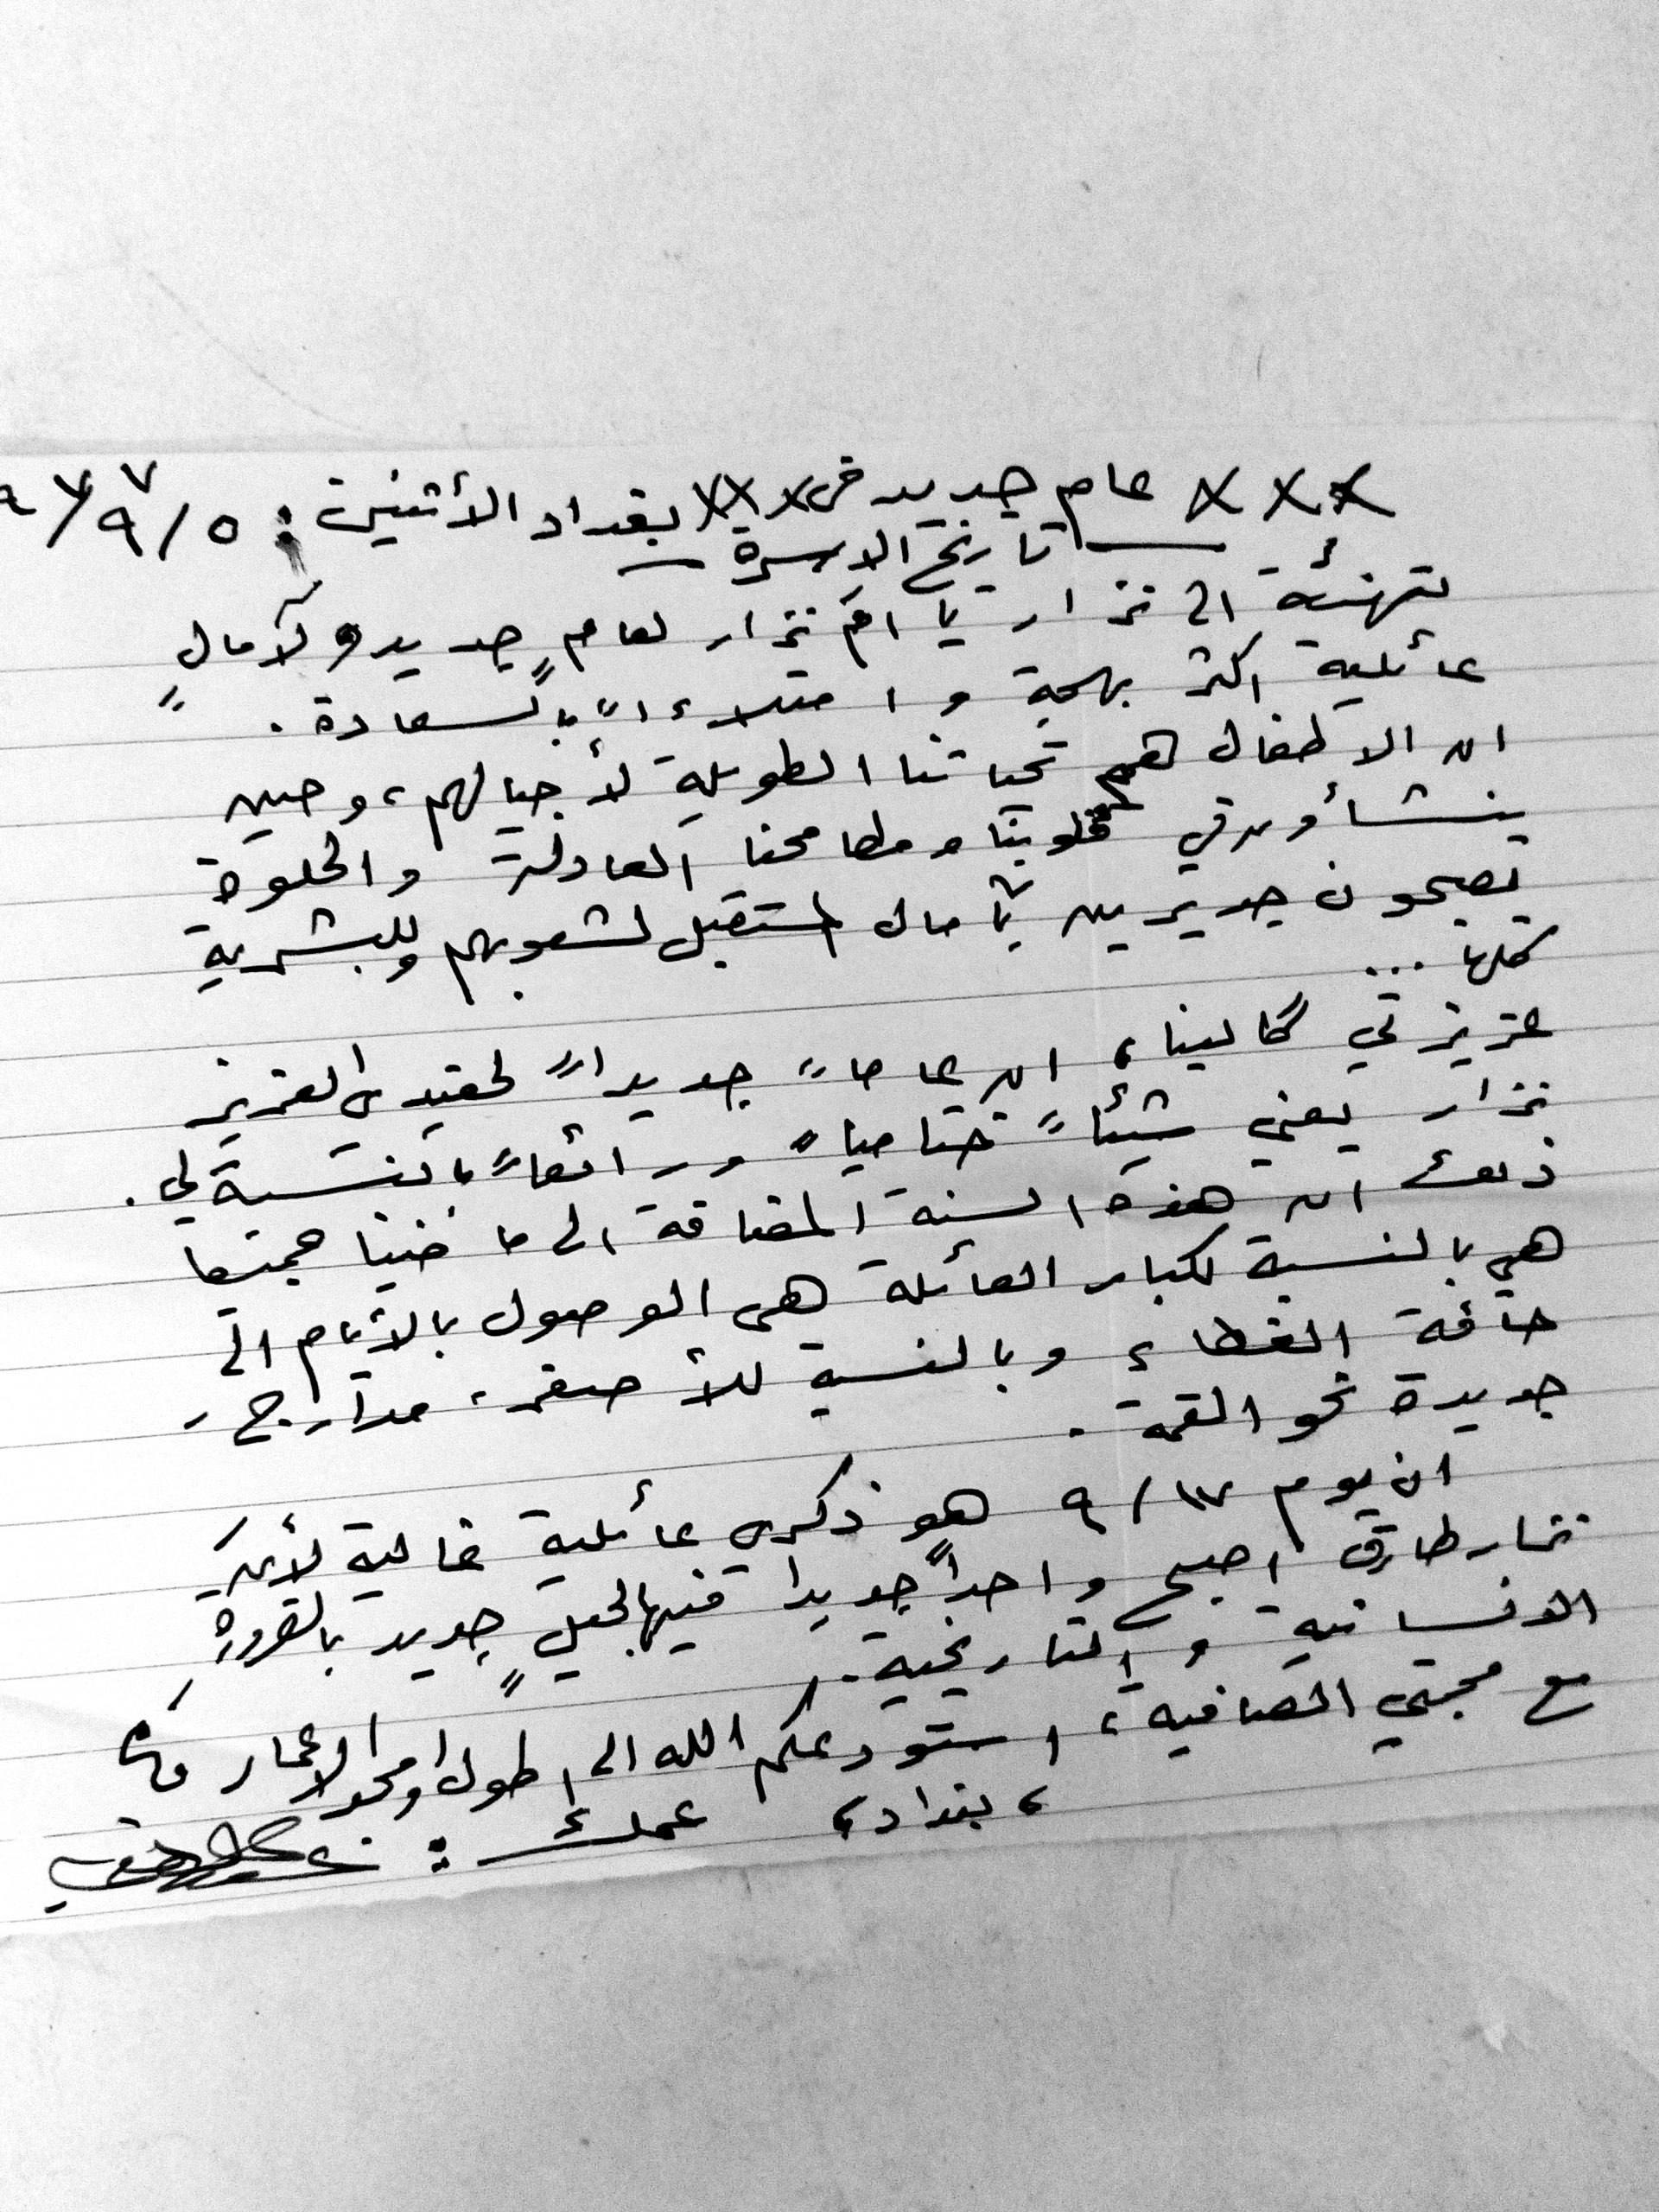 ××× عام جديد في ××× بغداد الأثنين : ٥ / ٩ /
تاريخ الاسرة
لتهنئة الى نزار يا ام نزار لعامٍ جديد ولآمالٍ
عائلية اكثر بهجة وامتلاءاً بالسعادة .
ان الاطفال هم تحياتنا الطويلة لأجيالهم ، وحين
ينشأون في قلوبنا ومطامحنا العادلة والحلوة
يصبحون جديرين بآمال المستقبل لشعوبهم وللبشرية
كلها ...
عزيزتي كالينا ، ان عاماً جديداً لحفيدي العزيز
نزار يعني شيئاً ختامياً ورائعاً بالنسبة لي .
ذلك ان هذه السنة المضافة الى ماضينا جميعا
هي بالنسبة لكبار العائلة هي الوصول بالأيام الى
حافة الغطاء وبالنسبة للأصغر ، مدارج
جديدة نحو القمة .
ان يوم ١٧ / ٩ هو ذكرى عائلية غالية لأن
نزار طارق اصبح واحداً جديدا فيها لجيلٍ جديد بالضرورة
الانسانية والتاريخية .
مع محبتي الصافية ، استودعكم الله الى اطول الاعمار
، بغداد ، عمك :